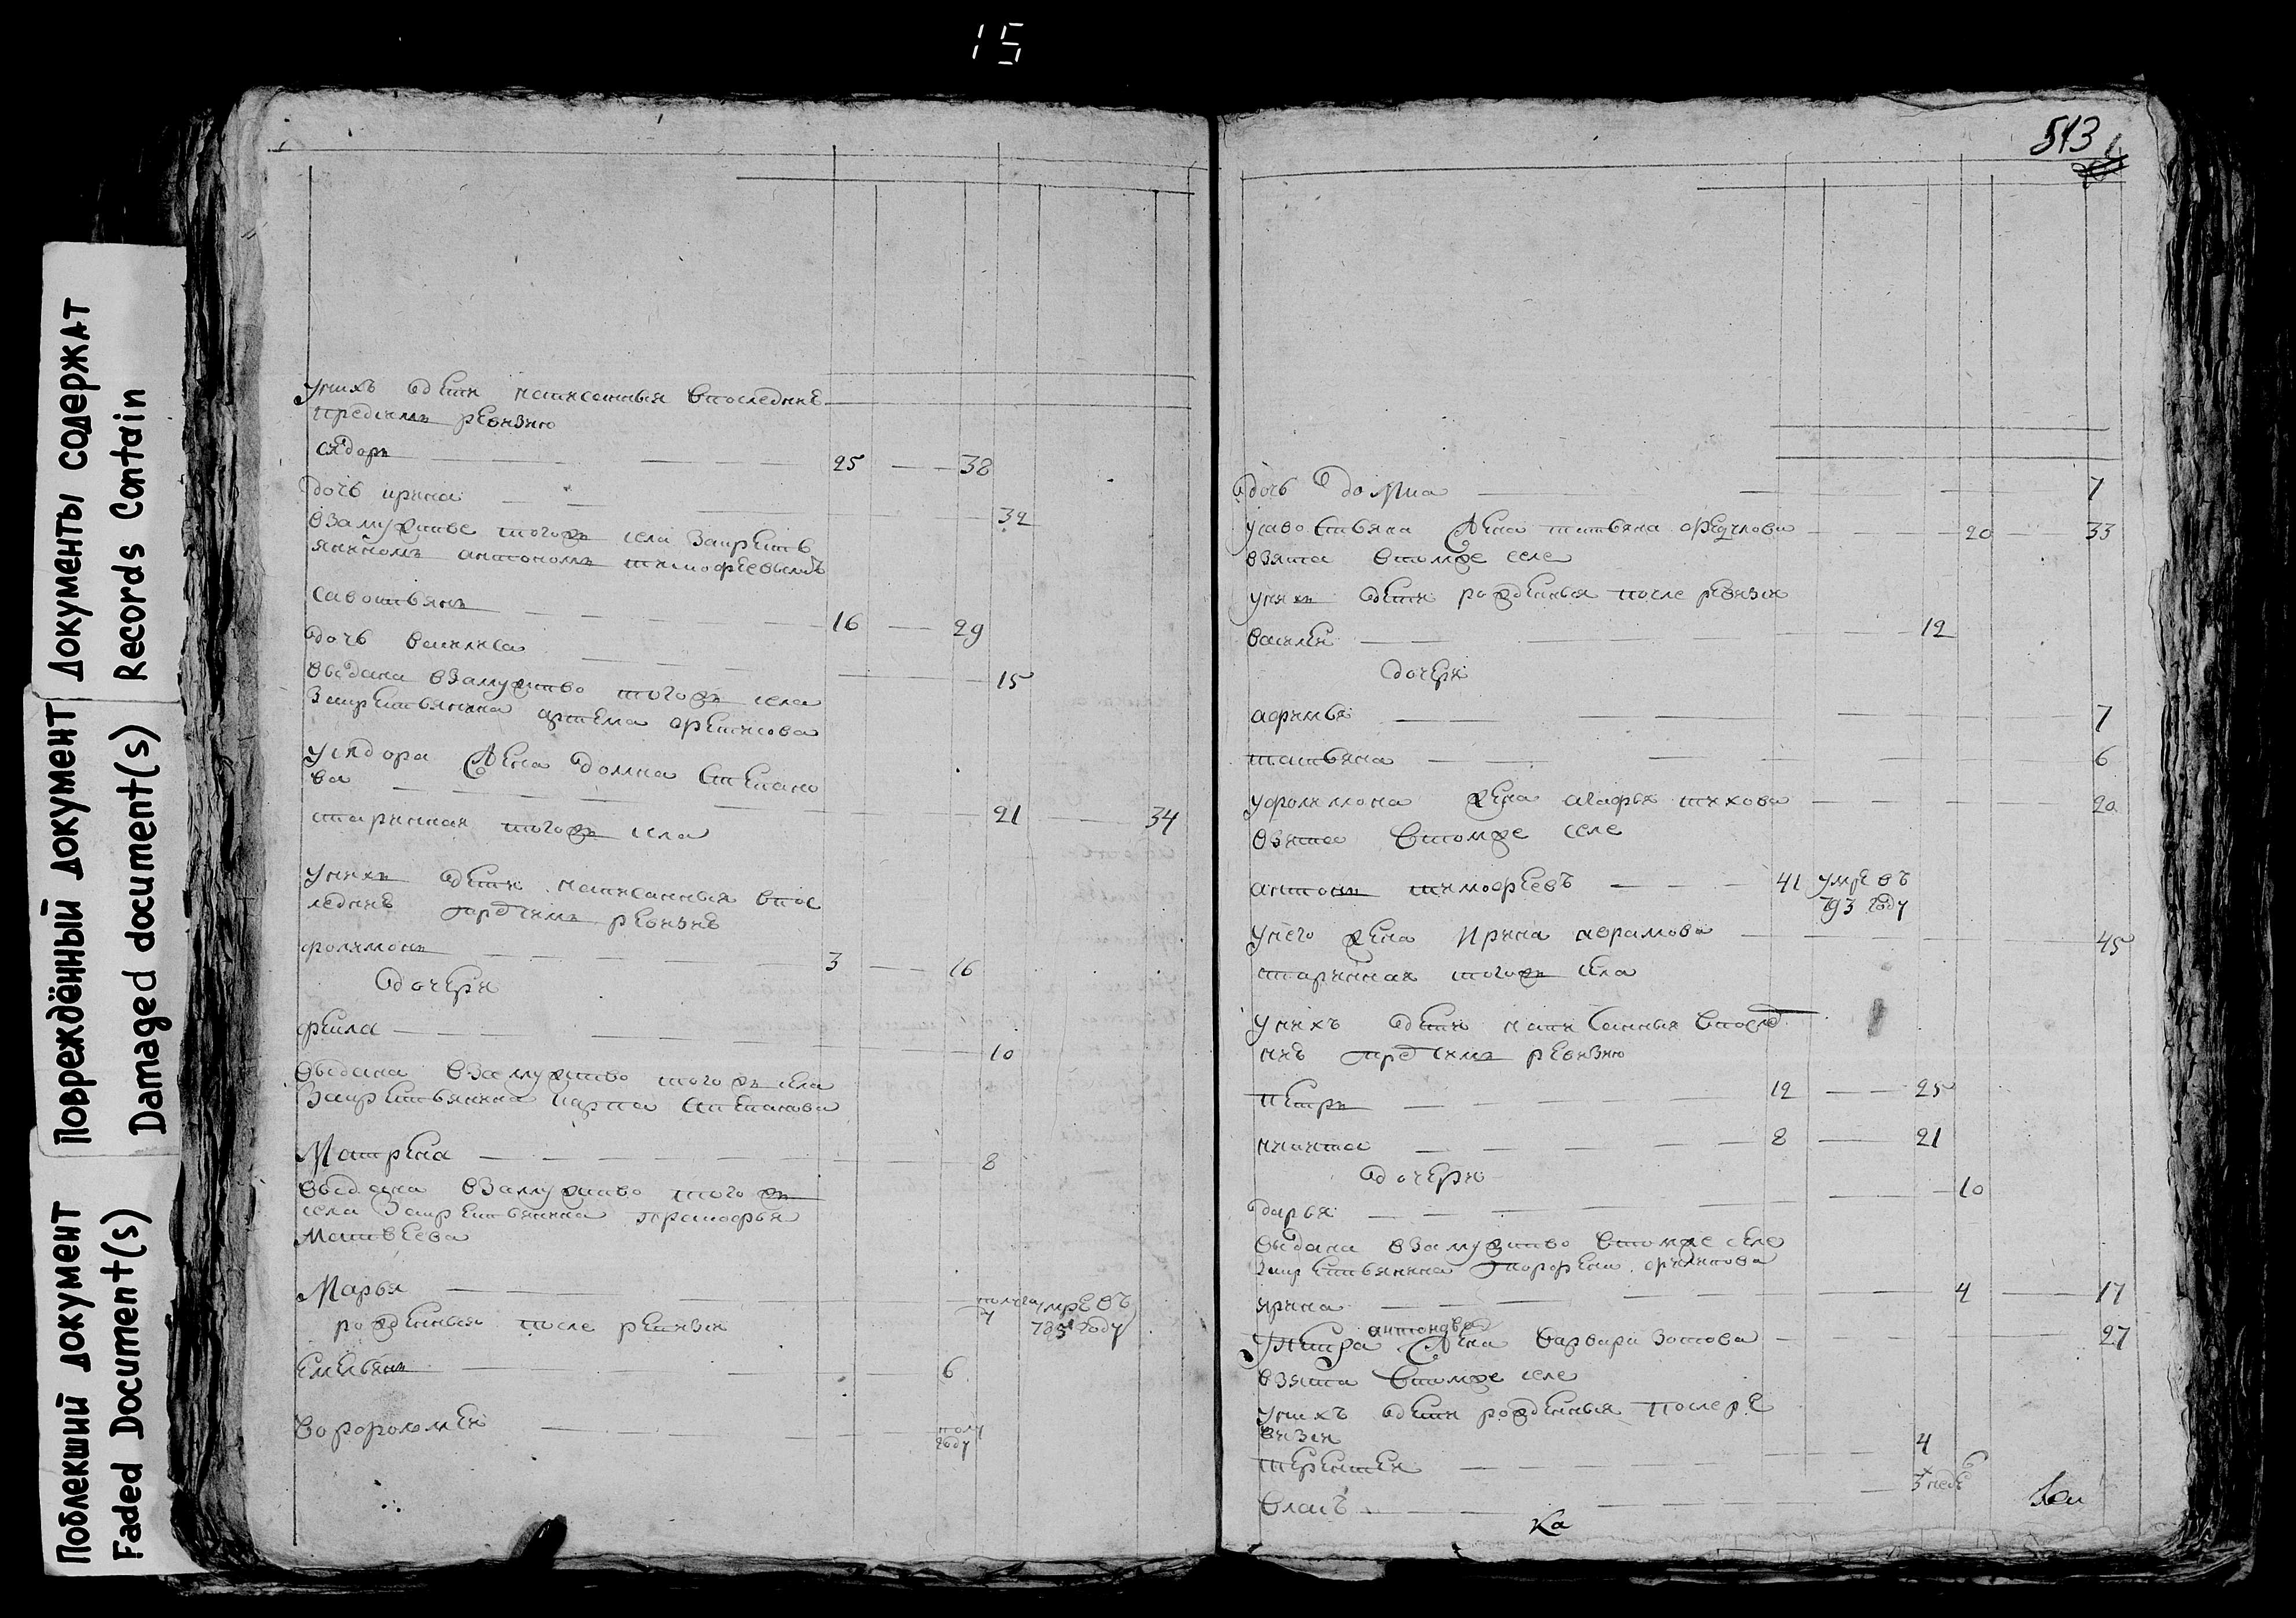 15
Документы содержат
Records Contain
Повреждённый документ
Damaged document(s)
Поблекший документ
Faded Document(s)
унихъ дети написанныя впоследнѣ
предсимъ ревизию
сидоръ 25 38
дочь ирина 32
взамужстве тогожъ села закрестья
яниномъ антономъ тимофеевымъ
савостьянъ 16 29
дочь василиса 15
выдана взамужство тогожъ села
закрестьянина артема
усидора жена домна степано
ва 21 34
старинная тогожъ села
унихъ дети написанныя впос
леднѣ предсимъ ревизиѣ
филимонъ 3 16
дочери
фекла 10
выдана взамужство тогожъ села
закрестьянина карпа степанова
Матрена 8
выдана взамужство тогожъ
села закрестьянина
Матвеева
Марья умре въ
785 году
рожденныя после ревизи
Емельянъ 6
Ворфоломей полу
году
513
дочь домна 7
усавостьяна жена татьяна 20 33
взята втомже селе
унихъ дети рожденныя после ревизи
василей 12
дочери
афимья 7
татьяна 6
уфилимона жена агафья 20
взята втомже селе
антонъ тимофеевъ 41 умре въ
793 году
унего жена Ирина аврамова 45
старинная тогожъ села
унихъ дети написанныя впослед
нѣ предсимъ ревизию
петръ 12 25
никита 8 21
дочери
дарья 10
выдана взамужство втомже селе
закрестьянина филипова
ирина 4 17
антонова
упетра жена варвара зотова 27
взята втомже селе
унихъ дети рожденныя послере
визи
терентей 4
власъ 3 неде
Ка